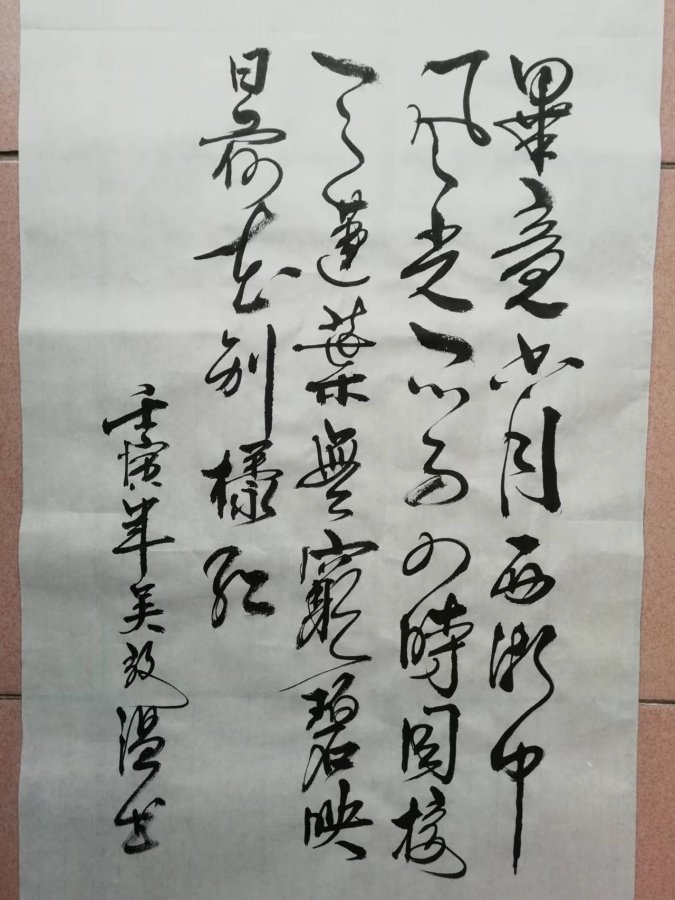 畢竟六月西湖中
風光不与四時同接
天蓮葉無窮碧映
日荷花别樣紅
壬寅年吴温书